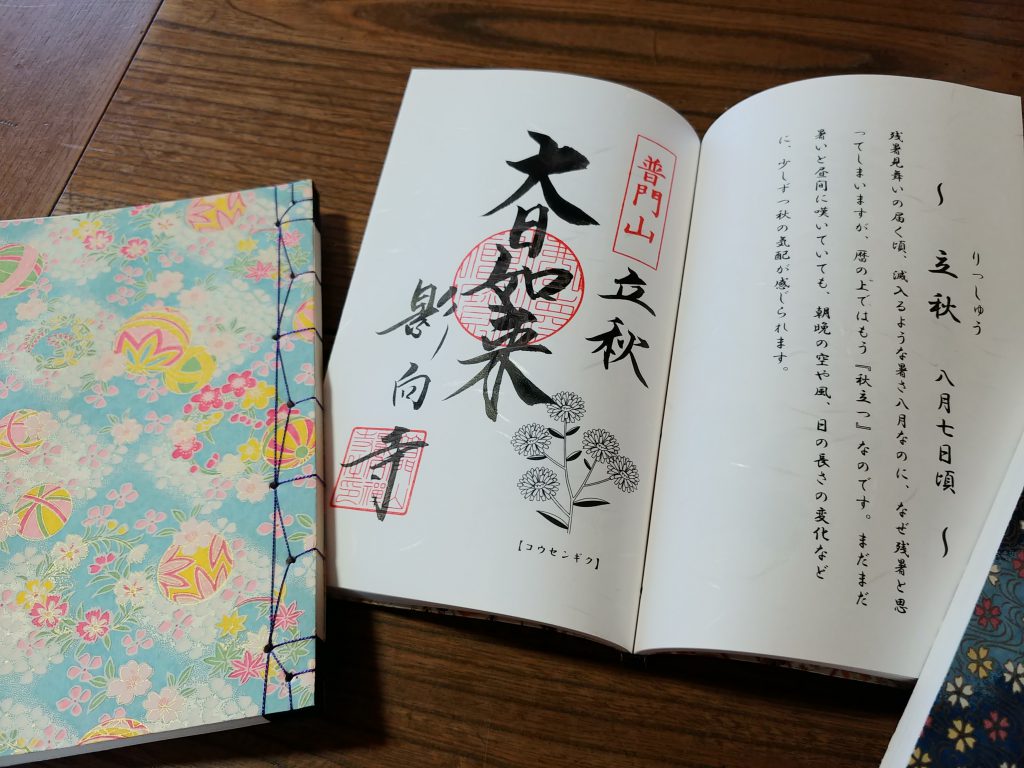 りっしゅう
～ 立秋 八月七日頃 ～
残暑見舞いの届く頃、滅入るような暑さ八月なのに、なぜ残暑と思
ってしまいますが、暦の上ではもう『秋立つ』なのです。まだまだ
暑いと昼間に嘆いていても、朝晩の空や風、日の長さの変化など
に、少しずつ秋の気配が感じられます。
普門山
立秋
大日如来
影向寺
【コウセンギク】